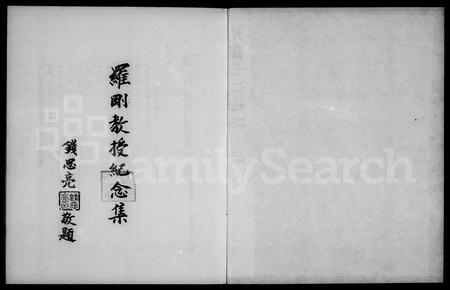 羅剛教授紀念集
錢思亮敬題
FamilySearch